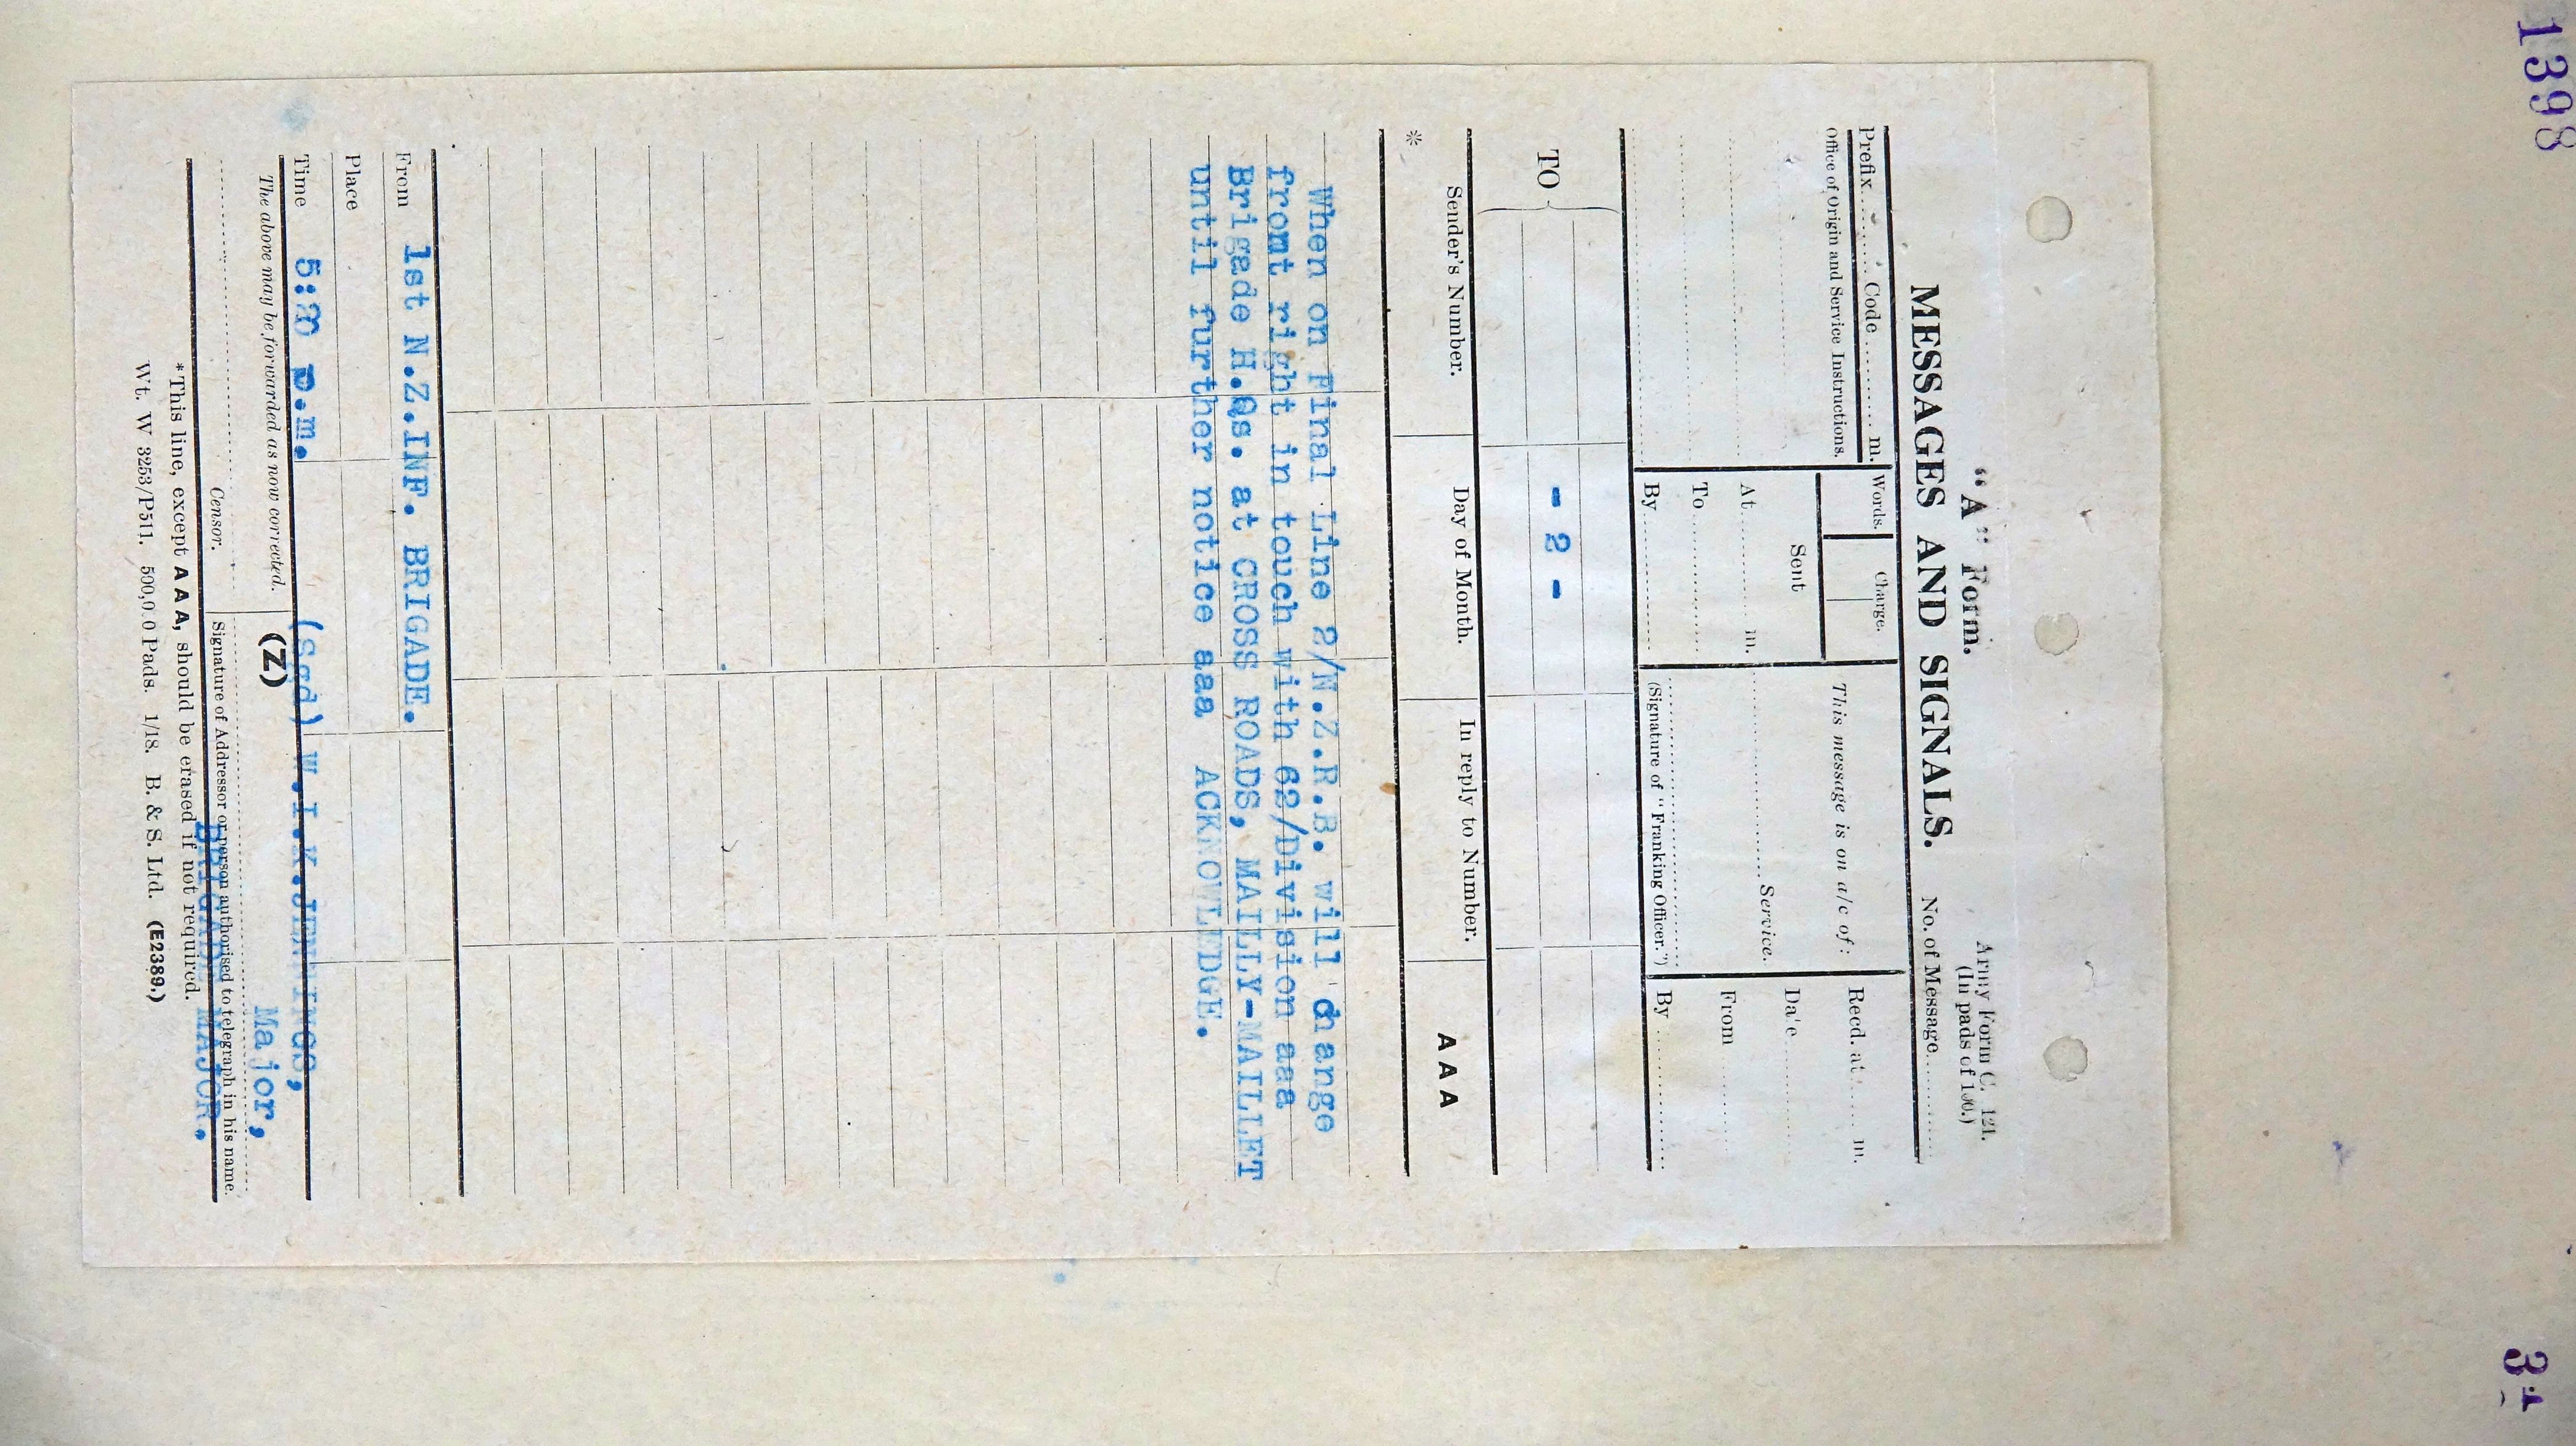 1398
"A" Form.
Army Form C. 121.
(In pads of 100.)
MESSAGES AND SIGNALS.
No. of Message............
Prefix............Code............m.
Words.
Charge.
This message is on a/c of:
Recd. at............m.
Office of Origin and Service Instructions.
Sent
............Service.
Date............
At............m.
From
To............
By............
(Signature of "Franking Officer.")
By............
TO
- 2 -
Sender's Number.
Day of Month.
In reply to Number.
AAA
*
When on Final Line 2/N.Z.R.B. will change
from right in touch with 62/Division aaa
Brigade H.Qs. at CROSS ROADS, MAILLY-MAILLET
until further notice aaa ACKNOWLEDGE.
From 1st N.Z.INF. BRIGADE.
Place
Time p.m.
(Sgd) W.I.K.JENNINGS,
The above may be forwarded as now corrected.
(Z)
Major,
Censor.
Signature of Addressor or person authorised to telegraph in his name.
BRIGADE MAJOR.
*This line, except AAA, should be erased if not required.
Wt. W 3253/P511. 500,0 0 Pads. 1/18. B. & S. Ltd. (E2389.)